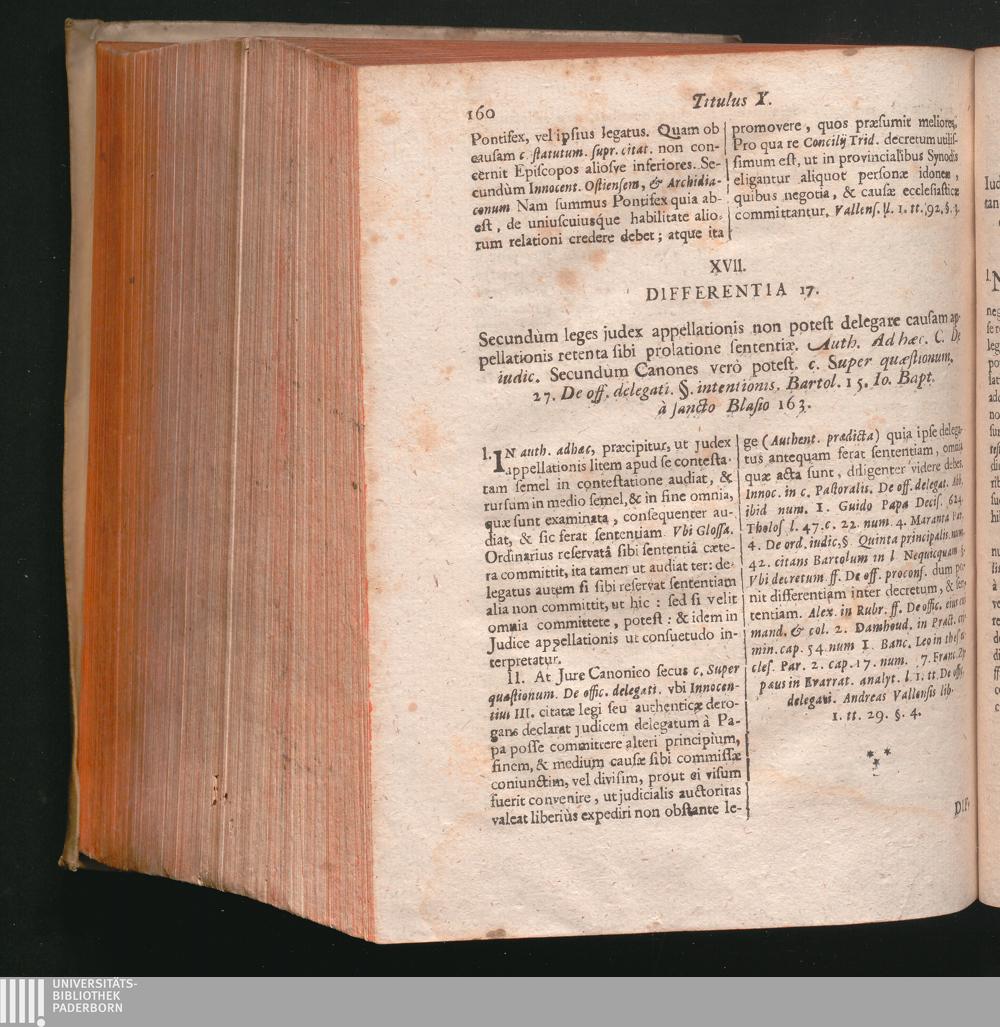 160
Titulus X.
Pontifex, vel ipſius legatus. Quam ob
cauſam c. ſtatutum. ſupr. citat. non con-
cernit Epiſcopos alioſve inferiores. Se-
cundùm Innocent. Oſtienſem, & Archidia-
conum Nam ſummus Pontifex quia ab-
eſt, de uniuſcuiusque habilitate alio-
rum relationi credere debet; atque ita
promovere, quos præſumit meliores,
Pro qua re Concilij Trid. decretum utiliſ-
ſimum eſt, ut in provincialibus Synodis
eligantur aliquot perſonæ idoneæ,
quibus negotia, & cauſæ eccleſiaſticæ
committantur. Vallenſ. li. 1. tt. 92. §. 3.
XVII.
DIFFERENTIA 17.
Secundùm leges judex appellationis non poteſt delegare cauſam ap-
pellationis retenta ſibi prolatione ſententiæ. Auth. Ad hæc. C. De
iudic. Secundum Canones verò poteſt. c. Super quæſtionum,
27. De off. delegati. §. intentionis. Bartol. 15. Io. Bapt.
à ſancto Blaſio 163.
I. IN auth. adhæc, præcipitur, ut judex
appellationis litem apud ſe conteſta-
tam ſemel in conteſtatione audiat, &
rurſum in medio ſemel, & in fine omnia,
quæ ſunt examinata, conſequenter au-
diat, & ſic ferat ſententiam Vbi Gloſſa.
Ordinarius reſervatâ ſibi ſententiâ cæte-
ra committit, ita tamen ut audiat ter: de-
legatus autem ſi ſibi reſervat ſententiam
alia non committit, ut hic: ſed ſi velit
omnia committete, poteſt: & idem in
Judice appellationis ut conſuetudo in-
terpretatur.
II. At Jure Canonico ſecus c. Super
quæſtionum. De offic. delegati. vbi Innocen-
tius III. citatæ legi ſeu authenticæ dero-
gans declarat judicem delegatum à Pa-
pa poſſe committere alteri principium,
finem, & medium cauſæ ſibi commiſſæ
coniunctim, vel diviſim, prout ei viſum
fuerit convenire, ut judicialis auctoritas
valeat liberiùs expediri non obſtante le-
ge (Authent. prædicta) quia ipſe delega-
tus antequam ferat ſententiam, omnia
quæ acta ſunt, diligenter videre debet.
Innoc. in c. Paſtoralis. De off. delegat. Abb.
ibid num. 1. Guido Papa Deciſ. 624.
Tholoſ l. 47. c. 22. num 4. Maranta Par.
4. De ord. iudic, §. Quinta principalis. num.
42. citans Bartolum in l Nequicquam §.
Vbi decretum ff. De off. proconſ. dum po-
nit differentiam inter decretum, & ſen-
tentiam. Alex. in Rubr. ff. De offic. eius cui
mand. & col. 2. Damhoud. in Pract. cri-
min. cap. 54 num 1. Banc. Leo in theſ. ec-
cleſ. Par. 2. cap. 17. num. 7. Franc. Zy-
pæus in Enarrat. analyt. l. 1. tt. De offic.
delegati. Andreas Vallenſis lib.
1. tt. 29. §. 4.
***
DIF-
UNIVERSITÄTS-
BIBLIOTHEK
PADERBORN